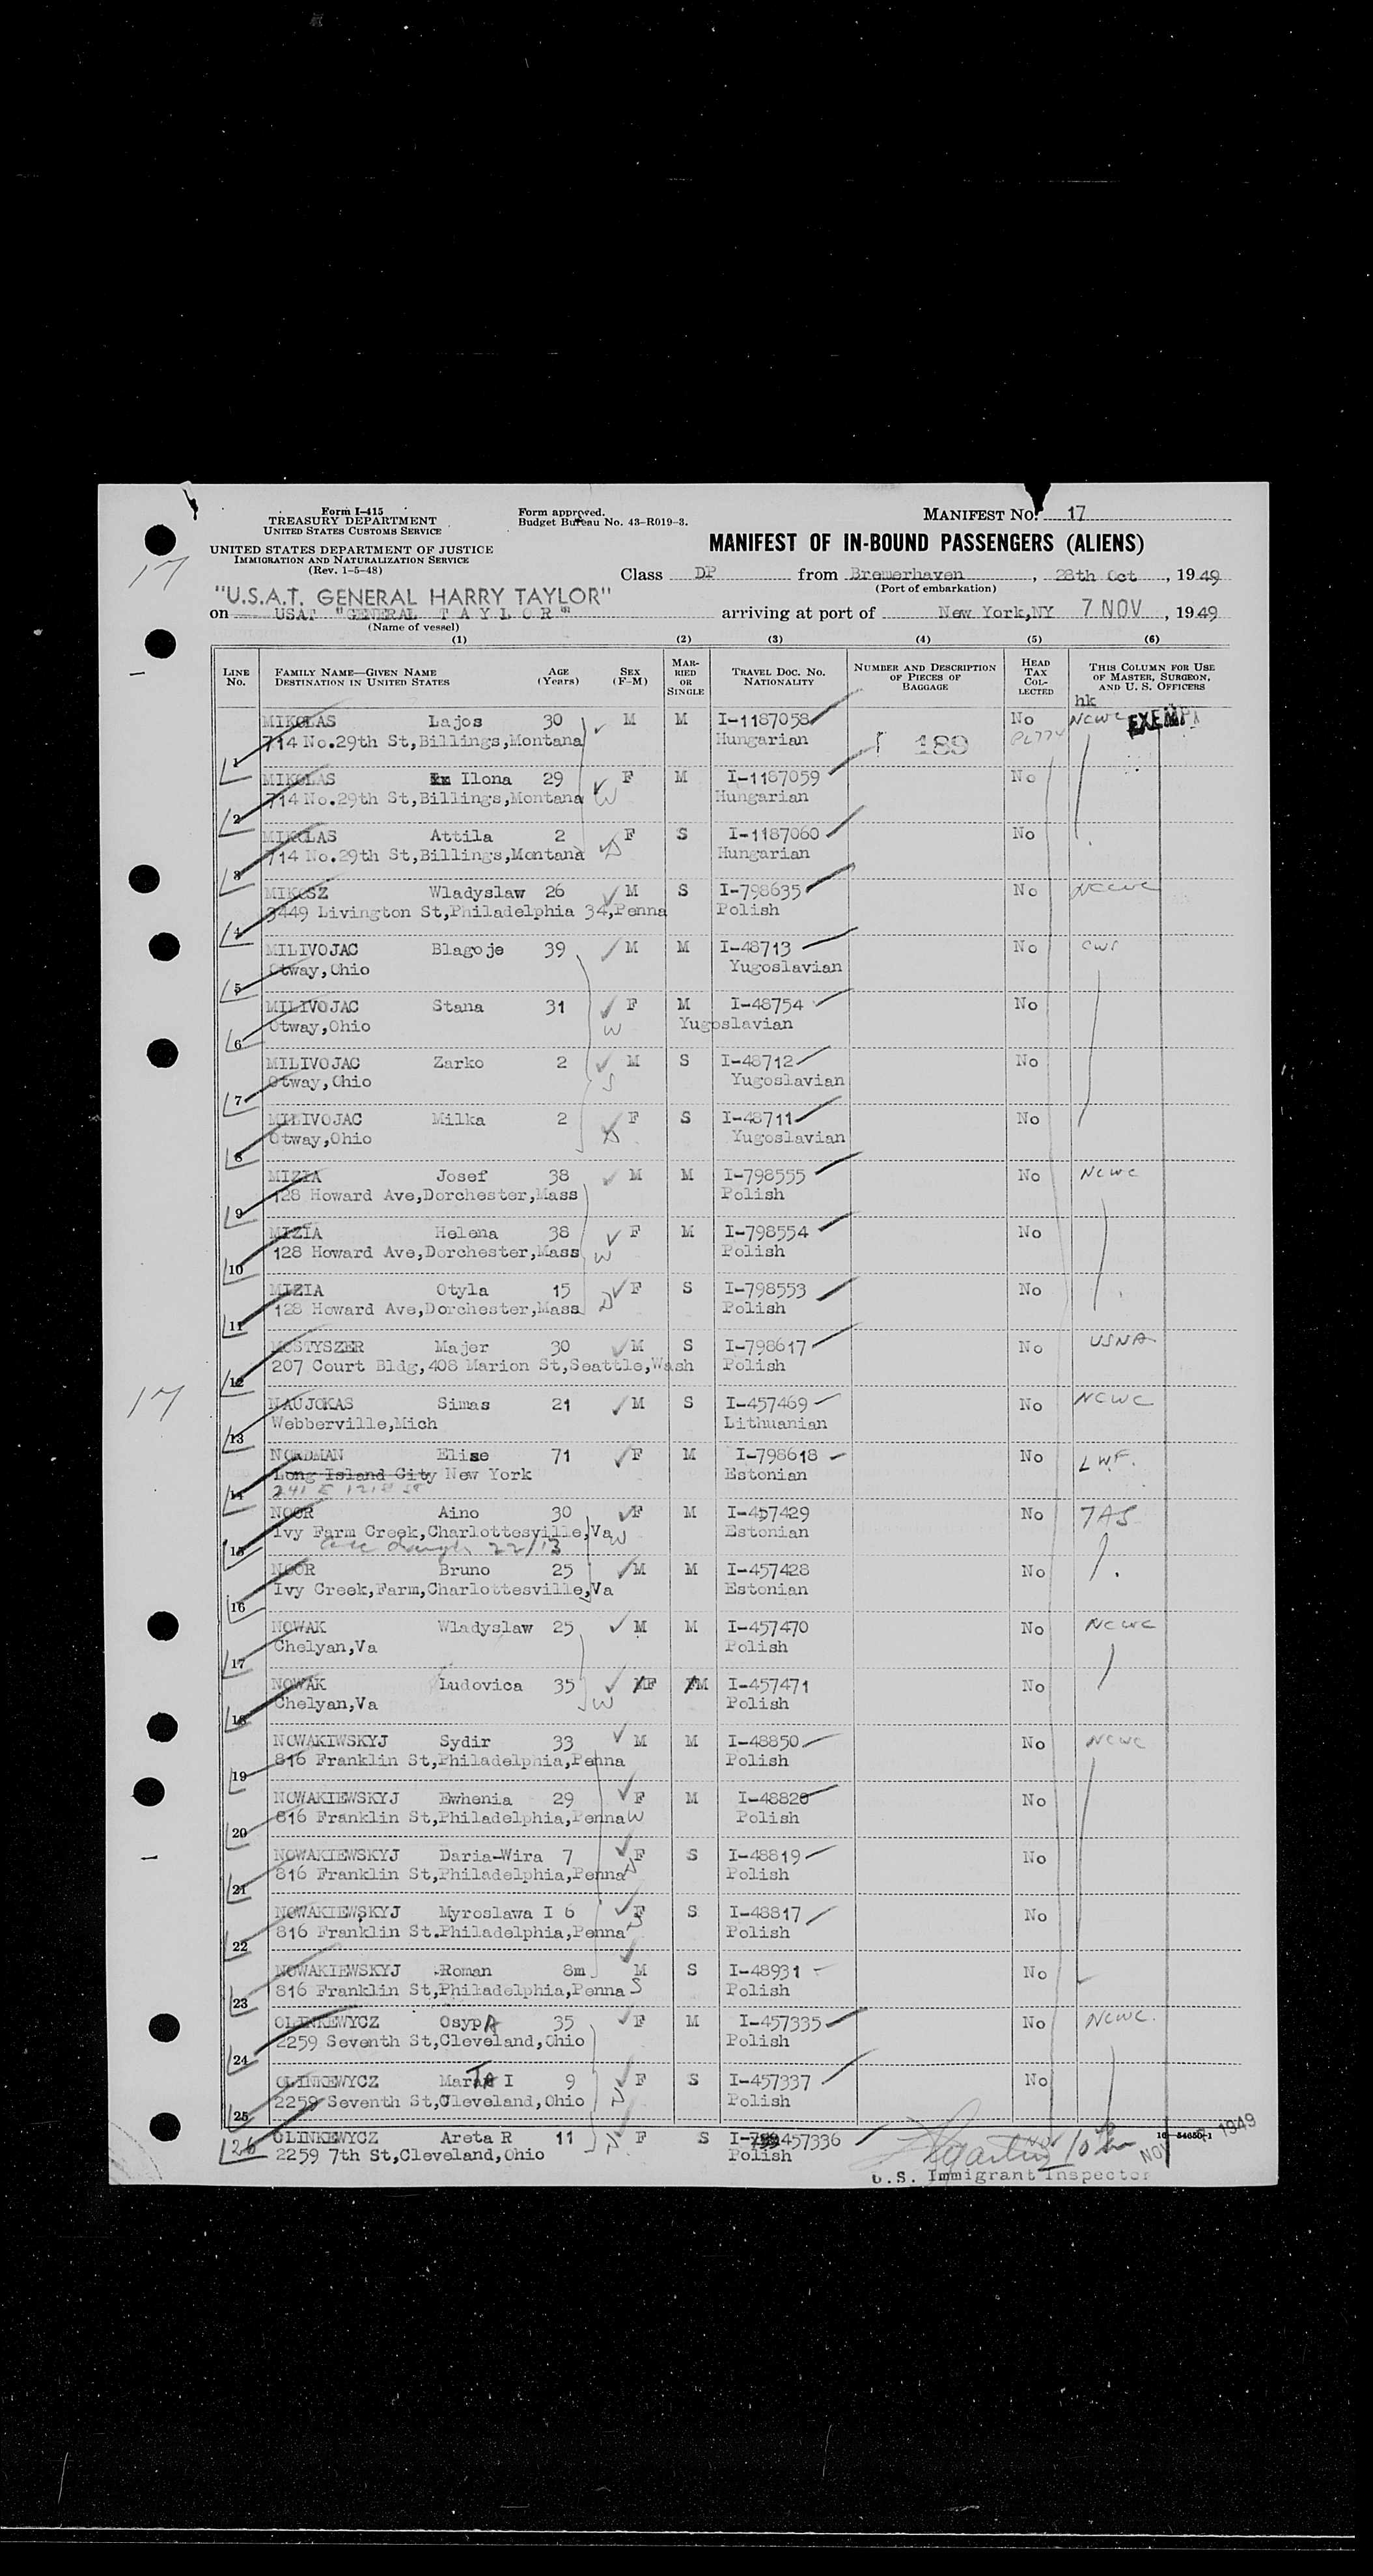 Form I-415
TREASURY DEPARTMENT
UNITED STATES CUSTOMS SERVICE
UNITED STATES DEPARTMENT OF JUSTICE
IMMIGRATION AND NATURALIZATION SERVICE
(Rev. 1-5-48)
Form approved.
Budget Bureau No. 43-R019-3.
MANIFEST NO. 17
MANIFEST OF IN-BOUND PASSENGERS (ALIENS)
17
Class DP from Bremerhaven, 28th Oct, 1949
(Port of embarkation)
"U.S.A.T. GENERAL HARRY TAYLOR"
on USAT "GENERAL TAYLOR" arriving at port of New York,NY 7 NOV, 1949
(Name of vessel)
(1) (2) (3) (4) (5) (6)
LINE NO. FAMILY NAME—GIVEN NAME DESTINATION IN UNITED STATES AGE (Years) SEX (F-M) MARRIED OR SINGLE TRAVEL DOC. NO. NATIONALITY NUMBER AND DESCRIPTION OF PIECES OF BAGGAGE HEAD TAX COLLECTED THIS COLUMN FOR USE OF MASTER, SURGEON, AND U. S. OFFICERS
hk
MIKOLAS Lajos 30 M M I-1187058 No NCWC EXEMPT
1 714 No.29th St,Billings,Montana Hungarian 189 PL774
MIKOLAS Ilona 29 F M I-1187059 No
2 714 No.29th St,Billings,Montana W Hungarian
MIKOLAS Attila 2 F S I-1187060 No
3 714 No.29th St,Billings,Montana D Hungarian
MIKOSZ Wladyslaw 26 M S I-798635 No NCWC
4 3449 Livington St,Philadelphia 34,Penna Polish
MILIVOJAC Blagoje 39 M M I-48713 No CWS
5 Otway,Ohio Yugoslavian
MILIVOJAC Stana 31 F M I-48754 No
6 Otway,Ohio W Yugoslavian
MILIVOJAC Zarko 2 M S I-48712 No
7 Otway,Ohio S Yugoslavian
MILIVOJAC Milka 2 F S I-48711 No
8 Otway,Ohio D Yugoslavian
MIZIA Josef 38 M M I-798555 No NCWC
9 128 Howard Ave,Dorchester,Mass Polish
MIZIA Helena 38 F M I-798554 No
10 128 Howard Ave,Dorchester,Mass W Polish
MIZIA Otyla 15 F S I-798553 No
11 128 Howard Ave,Dorchester,Mass D Polish
MOSTYSZER Majer 30 M S I-798617 No USNA
12 207 Court Bldg,408 Marion St,Seattle,Wash Polish
17
NAUJOKAS Simas 21 M S I-457469 No NCWC
13 Webberville,Mich Lithuanian
NORDMAN Elise 71 F M I-798618 No LWF.
Long Island City New York Estonian
14 241 E 121st St
NOOR Aino 30 F M I-457429 No TAS
Ivy Farm Creek,Charlottesville,Va W Estonian
15 22/13
NOOR Bruno 25 M M I-457428 No
16 Ivy Creek,Farm,Charlottesville,Va Estonian
NOWAK Wladyslaw 25 M M I-457470 No NCWC
17 Chelyan,Va Polish
NOWAK Ludovica 35 MF FM I-457471 No
18 Chelyan,Va W Polish
NOWAKIWSKYJ Sydir 33 M M I-48850 No NCWC
19 816 Franklin St,Philadelphia,Penna Polish
NOWAKIEWSKYJ Ewhenia 29 F M I-48820 No
20 816 Franklin St,Philadelphia,Penna W Polish
NOWAKIEWSKYJ Daria-Wira 7 F S I-48819 No
21 816 Franklin St,Philadelphia,Penna D Polish
NOWAKIEWSKYJ Myroslawa I 6 F S I-48817 No
22 816 Franklin St.Philadelphia,Penna D Polish
NOWAKIEWSKYJ Roman 8m M S I-48931 No
23 816 Franklin St,Philadelphia,Penna S Polish
OLINKEWYCZ OsypA 35 F M I-457335 No NCWC.
24 2259 Seventh St,Cleveland,Ohio Polish
OLINKEWYCZ MarTA I 9 F S I-457337 No
25 2259 Seventh St,Cleveland,Ohio D Polish
26 OLINKEWYCZ Areta R 11 F S I-457336 No 16—54650-1
2259 7th St,Cleveland,Ohio D Polish NOV 1949
U.S. Immigrant Inspector